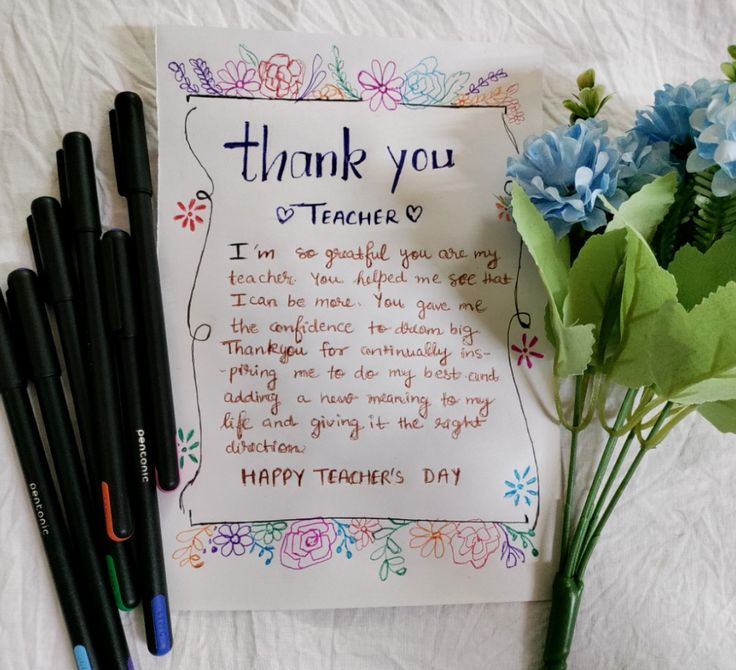 thank you
♡ TEACHER ♡
I'm so greatful you are my
teacher. You helped me see that
I can be more. You gave me
the confidence to dream big
Thankyou for continually ins-
-piring me to do my best and
adding a new meaning to my
life and giving it the right
direction.
HAPPY TEACHER'S DAY
pentonic
pentonic